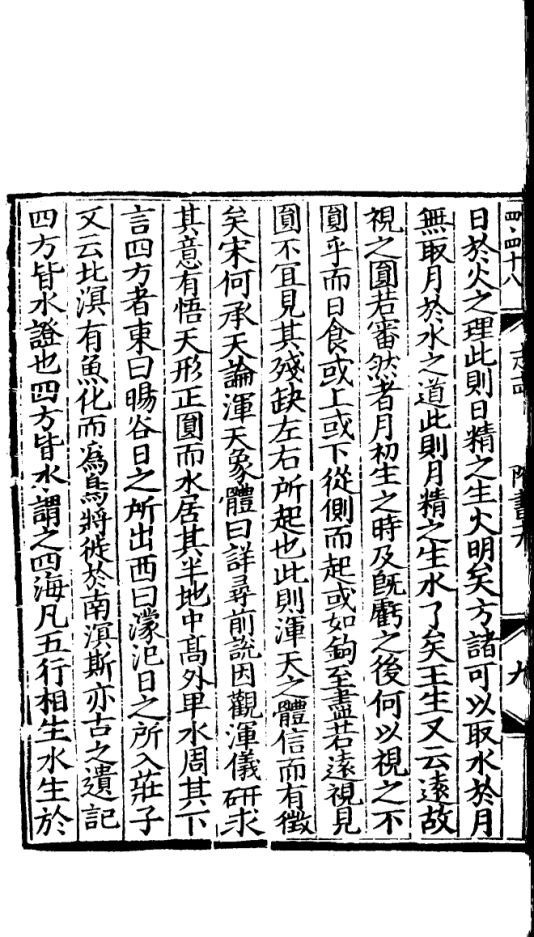 四·四十八 志 隋書 九
日於火之理此則日精之生火明矣方諸可以取水於月
無取月於水之道此則月精之生水了矣王生又云遠故
視之圓若審然者月初生之時及旣虧之後何以視之不
圓乎而日食或上或下從側而起或如鉤至盡若遠視見
圓不宜見其殘缺左右所起也此則渾天之體信而有徵
矣宋何承天論渾天象體曰詳尋前說因觀渾儀研求
其意有悟天形正圓而水居其半地中高外卑水周其下
言四方者東曰暘谷日之所出西曰濛汜日之所入莊子
又云北溟有魚化而爲鳥將徙於南溟斯亦古之遺記
四方皆水證也四方皆水謂之四海凡五行相生水生於